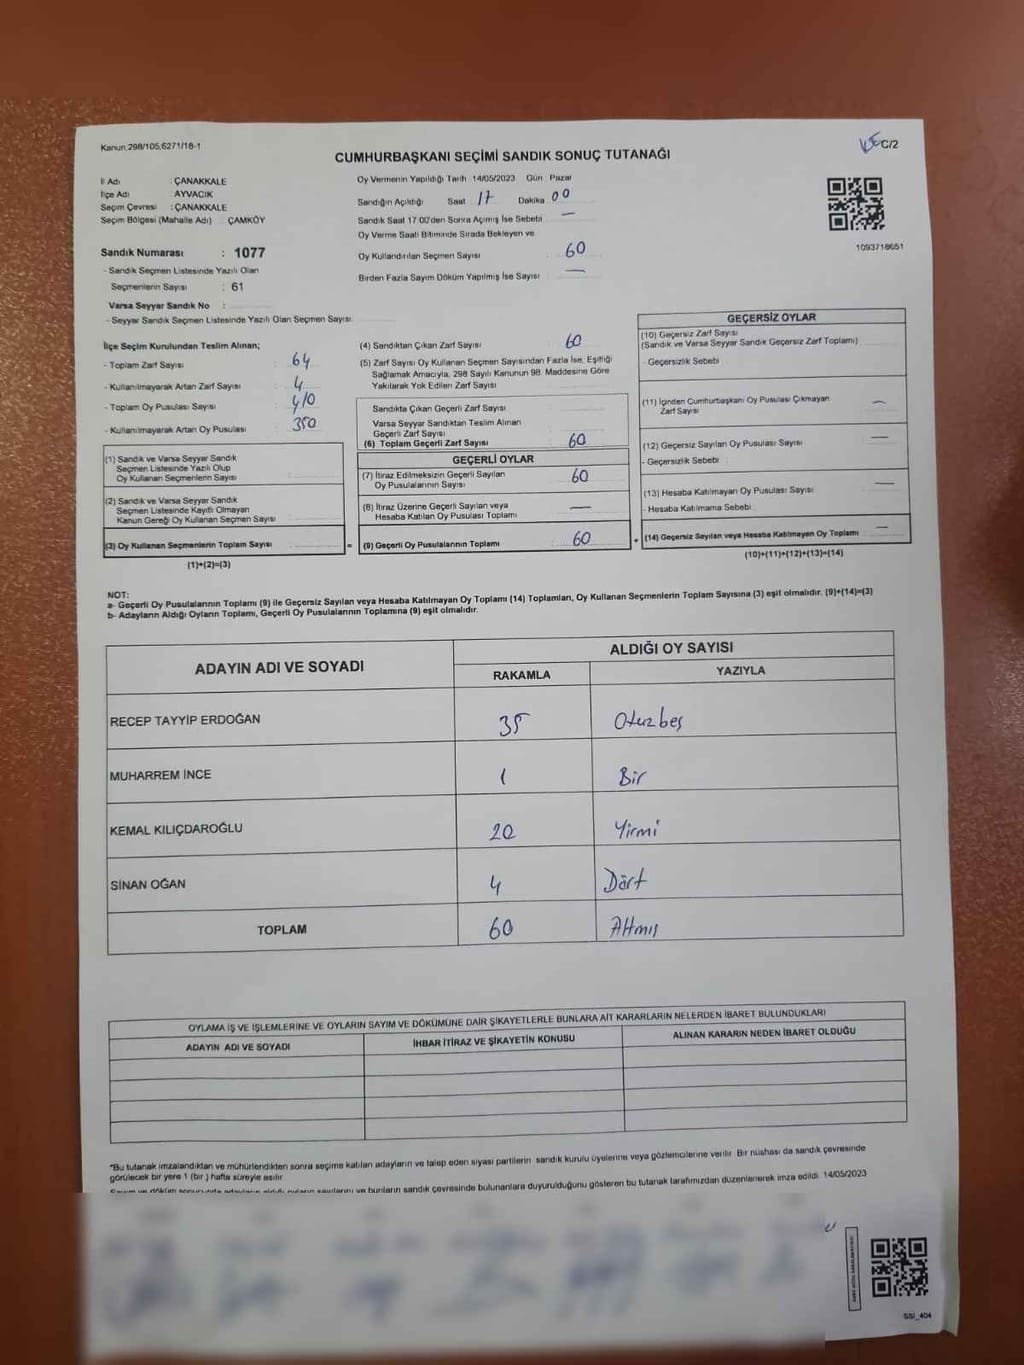 Kanun:298/105,6271/18-1
C/2
CUMHURBAŞKANI SEÇİMİ SANDIK SONUÇ TUTANAĞI
İl Adı : ÇANAKKALE
İlçe Adı : AYVACIK
Seçim Çevresi : ÇANAKKALE
Seçim Bölgesi (Mahalle Adı) : ÇAMKÖY
Oy Vermenin Yapıldığı Tarih 14/05/2023 Gün Pazar
Sandığın Açıldığı Saat 17 Dakika 00
Sandık Saat 17:00'den Sonra Açımış İse Sebebi —
Oy Verme Saati Bitiminde Sırada Bekleyen ve
Oy Kullandırılan Seçmen Sayısı : 60
Birden Fazla Sayım Döküm Yapılmış İse Sayısı : —
1093718651
Sandık Numarası : 1077
- Sandık Seçmen Listesinde Yazılı Olan
Seçmenlerin Sayısı : 61
Varsa Seyyar Sandık No :
- Seyyar Sandık Seçmen Listesinde Yazılı Olan Seçmen Sayısı:
İlçe Seçim Kurulundan Teslim Alınan;
- Toplam Zarf Sayısı : 64
- Kullanılmayarak Artan Zarf Sayısı : 4
- Toplam Oy Pusulası Sayısı : 410
- Kullanılmayarak Artan Oy Pusulası : 350
(1) Sandık ve Varsa Seyyar Sandık
Seçmen Listesinde Yazılı Olup
Oy Kullanan Seçmen Sayısı :
(2) Sandık ve Varsa Seyyar Sandık
Seçmen Listesinde Kayıtlı Olmayan
Kanun Gereği Oy Kullanan Seçmen Sayısı :
(3) Oy Kullanan Seçmenlerin Toplam Sayısı :
(1)+(2)=(3)
(4) Sandıktan Çıkan Zarf Sayısı : 60
(5) Zarf Sayısı Oy Kullanan Seçmen Sayısından Fazla İse, Eşitliği
Sağlamak Amacıyla, 298 Sayılı Kanunun 98. Maddesine Göre
Yakılarak Yok Edilen Zarf Sayısı :
Sandıkta Çıkan Geçerli Zarf Sayısı :
Varsa Seyyar Sandıktan Teslim Alınan
Geçerli Zarf Sayısı :
(6) Toplam Geçerli Zarf Sayısı : 60
GEÇERLİ OYLAR
(7) İtiraz Edilmeksizin Geçerli Sayılan
Oy Pusulalarının Sayısı : 60
(8) İtiraz Üzerine Geçerli Sayılan veya
Hesaba Katılan Oy Pusulası Toplamı : —
= (9) Geçerli Oy Pusulalarının Toplamı : 60
GEÇERSİZ OYLAR
(10) Geçersiz Zarf Sayısı
(Sandık ve Varsa Seyyar Sandık Geçersiz Zarf Toplamı) :
- Geçersizlik Sebebi :
(11) İçinden Cumhurbaşkanı Oy Pusulası Çıkmayan
Zarf Sayısı : —
(12) Geçersiz Sayılan Oy Pusulası Sayısı : —
- Geçersizlik Sebebi :
(13) Hesaba Katılmayan Oy Pusulası Sayısı : —
- Hesaba Katılmama Sebebi :
+ (14) Geçersiz Sayılan veya Hesaba Katılmayan Oy Toplamı : —
(10)+(11)+(12)+(13)=(14)
NOT:
a- Geçerli Oy Pusulalarının Toplamı (9) ile Geçersiz Sayılan veya Hesaba Katılmayan Oy Toplamı (14) Toplamları, Oy Kullanan Seçmenlerin Toplam Sayısına (3) eşit olmalıdır. (9)+(14)=(3)
b- Adayların Aldığı Oyların Toplamı, Geçerli Oy Pusulalarının Toplamına (9) eşit olmalıdır.
ADAYIN ADI VE SOYADI
ALDIĞI OY SAYISI
RAKAMLA YAZIYLA
RECEP TAYYİP ERDOĞAN 35 Otuzbeş
MUHARREM İNCE 1 Bir
KEMAL KILIÇDAROĞLU 20 Yirmi
SİNAN OĞAN 4 Dört
TOPLAM 60 Altmış
OYLAMA İŞ VE İŞLEMLERİNE VE OYLARIN SAYIM VE DÖKÜMÜNE DAİR ŞİKAYETLERLE BUNLARA AİT KARARLARIN NELERDEN İBARET BULUNDUKLARI
ADAYIN ADI VE SOYADI İHBAR İTİRAZ VE ŞİKAYETİN KONUSU ALINAN KARARIN NEDEN İBARET OLDUĞU
*Bu tutanak imzalandıktan ve mühürlendikten sonra seçime katılan adayların ve talep eden siyasi partilerin sandık kurulu üyelerine veya gözlemcilerine verilir. Bir nüshası da sandık çevresinde
görülecek bir yere 1 (bir) hafta süreyle asılır.
Sayım ve döküm sonucunda adayların aldığı oyların sayılarını ve bunların sandık çevresinde bulunanlara duyurulduğunu gösteren bu tutanak tarafımızdan düzenlenerek imza edildi. 14/05/2023
SSI_404